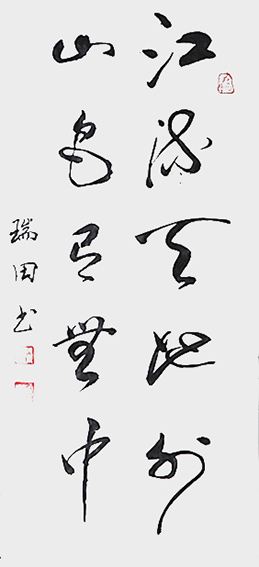 江流天地外
山色有無中
瑞田书